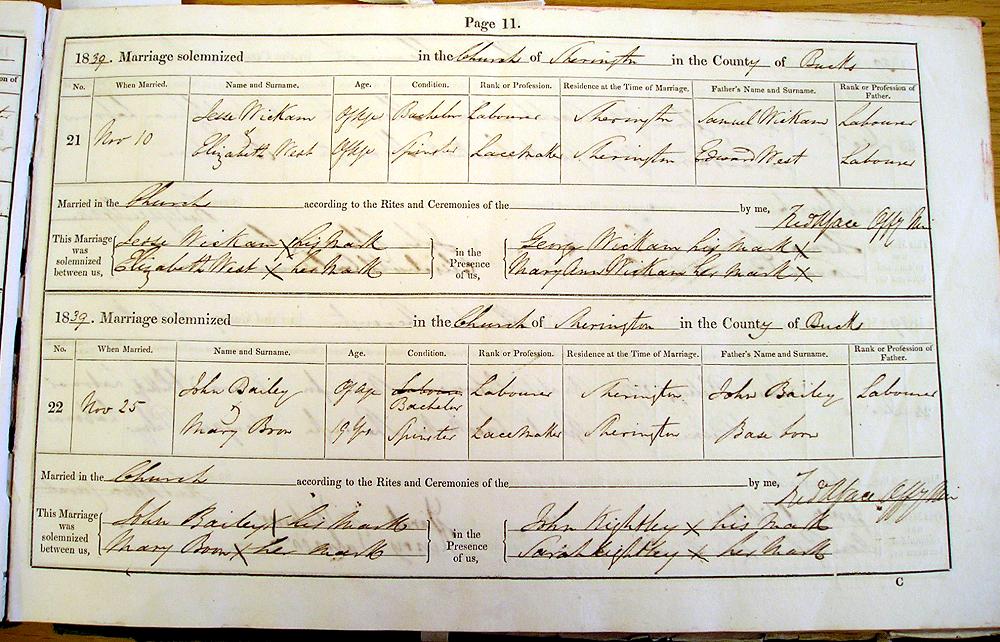 Page 11.
1839. Marriage solemnized in the Church of Sherington in the County of Bucks
No. When Married. Name and Surname. Age. Condition. Rank or Profession. Residence at the Time of Marriage. Father's Name and Surname. Rank or Profession of Father.
21 Nov 10 Jesse Wickam Of Age Bachelor Labourer Sherington Samuel Wickam Labourer
& Elizabeth West Of Age Spinster Lacemaker Sherington Edward West Labourer
Married in the Church according to the Rites and Ceremonies of the by me, Offg Min
This Marriage was solemnized between us, Jesse Wickam X his mark in the Presence of us, George Wickam his mark X
Elizabeth West X her mark Mary Ann Wickam her mark X
1839. Marriage solemnized in the Church of Sherington in the County of Bucks
No. When Married. Name and Surname. Age. Condition. Rank or Profession. Residence at the Time of Marriage. Father's Name and Surname. Rank or Profession of Father.
22 Nov 25 John Bailey Of Age Labourer Bachelor Labourer Sherington John Bailey Labourer
& Mary Bron 19 Yrs Spinster Lacemaker Sherington Base born
Married in the Church according to the Rites and Ceremonies of the by me, Offg Min
This Marriage was solemnized between us, John Bailey X his mark in the Presence of us, John Kightley X his mark
Mary Bron X her mark Sarah Kightley X her mark
C